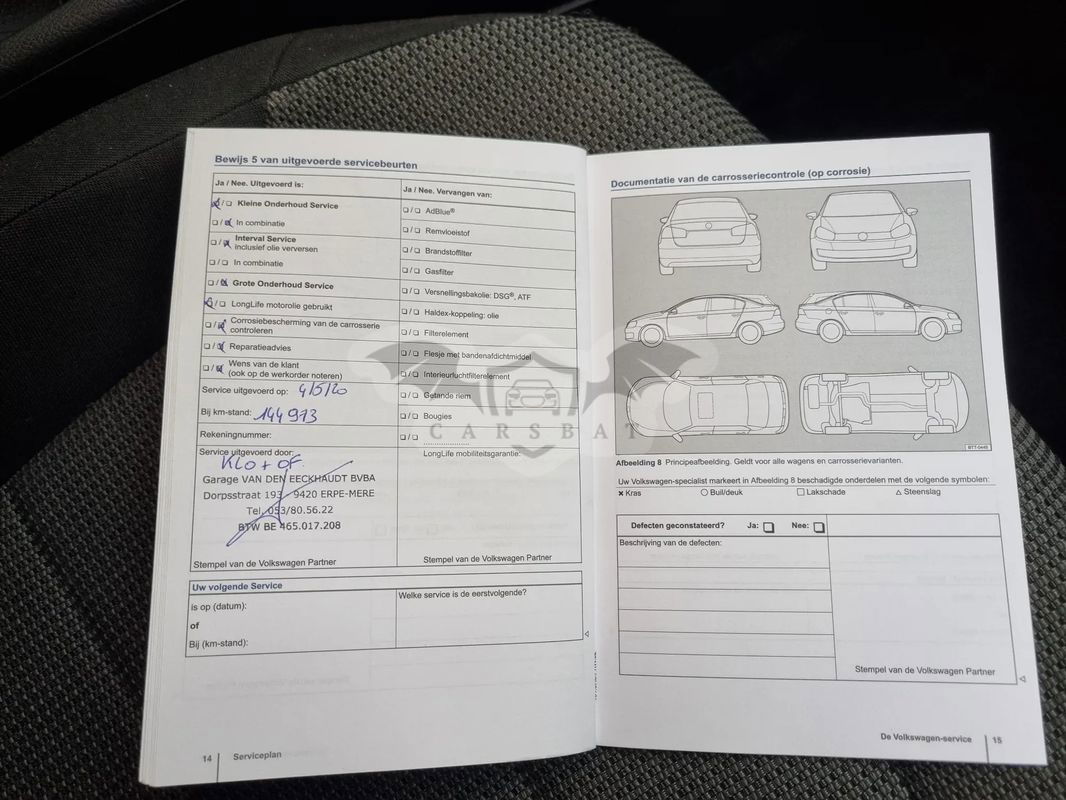 Bewijs 5 van uitgevoerde servicebeurten
Ja / Nee. Uitgevoerd is:
Kleine Onderhoud Service
In combinatie
Interval Service
Inclusief olie verversen
In combinatie
Grote Onderhoud Service
LongLife motorolie gebruikt
Corrosiebescherming van de carrosserie
controleren
Reparatieadvies
Wens van de klant
(ook op de werkorder noteren)
Service uitgevoerd op: 4/5/20
Bij km-stand: 144 973
Rekeningnummer:
Service uitgevoerd door:
KLO + OF.
Garage VAN DEN EECKHAUDT BVBA
Dorpsstraat 193 9420 ERPE-MERE
Tel. 053/80.56.22
BTW BE 465.017.208
Stempel van de Volkswagen Partner
Ja / Nee. Vervangen van:
AdBlue®
Remvloeistof
Brandstoffilter
Gasfilter
Versnellingsbakolie: DSG®, ATF
Haldex-koppeling: olie
Filterelement
Flesje met bandenafdichtmiddel
Interieurluchtfilterelement
Getande riem
Bougies
LongLife mobiliteitsgarantie:
Stempel van de Volkswagen Partner
Uw volgende Service
is op (datum):
of
Bij (km-stand):
Welke service is de eerstvolgende?
14 Serviceplan
Documentatie van de carrosseriecontrole (op corrosie)
BTT-0448
Afbeelding 8 Principeafbeelding. Geldt voor alle wagens en carrosserievarianten.
Uw Volkswagen-specialist markeert in Afbeelding 8 beschadigde onderdelen met de volgende symbolen:
Kras Buil/deuk Lakschade Steenslag
Defecten geconstateerd? Ja: Nee:
Beschrijving van de defecten:
Stempel van de Volkswagen Partner
De Volkswagen-service 15
CARSBAT